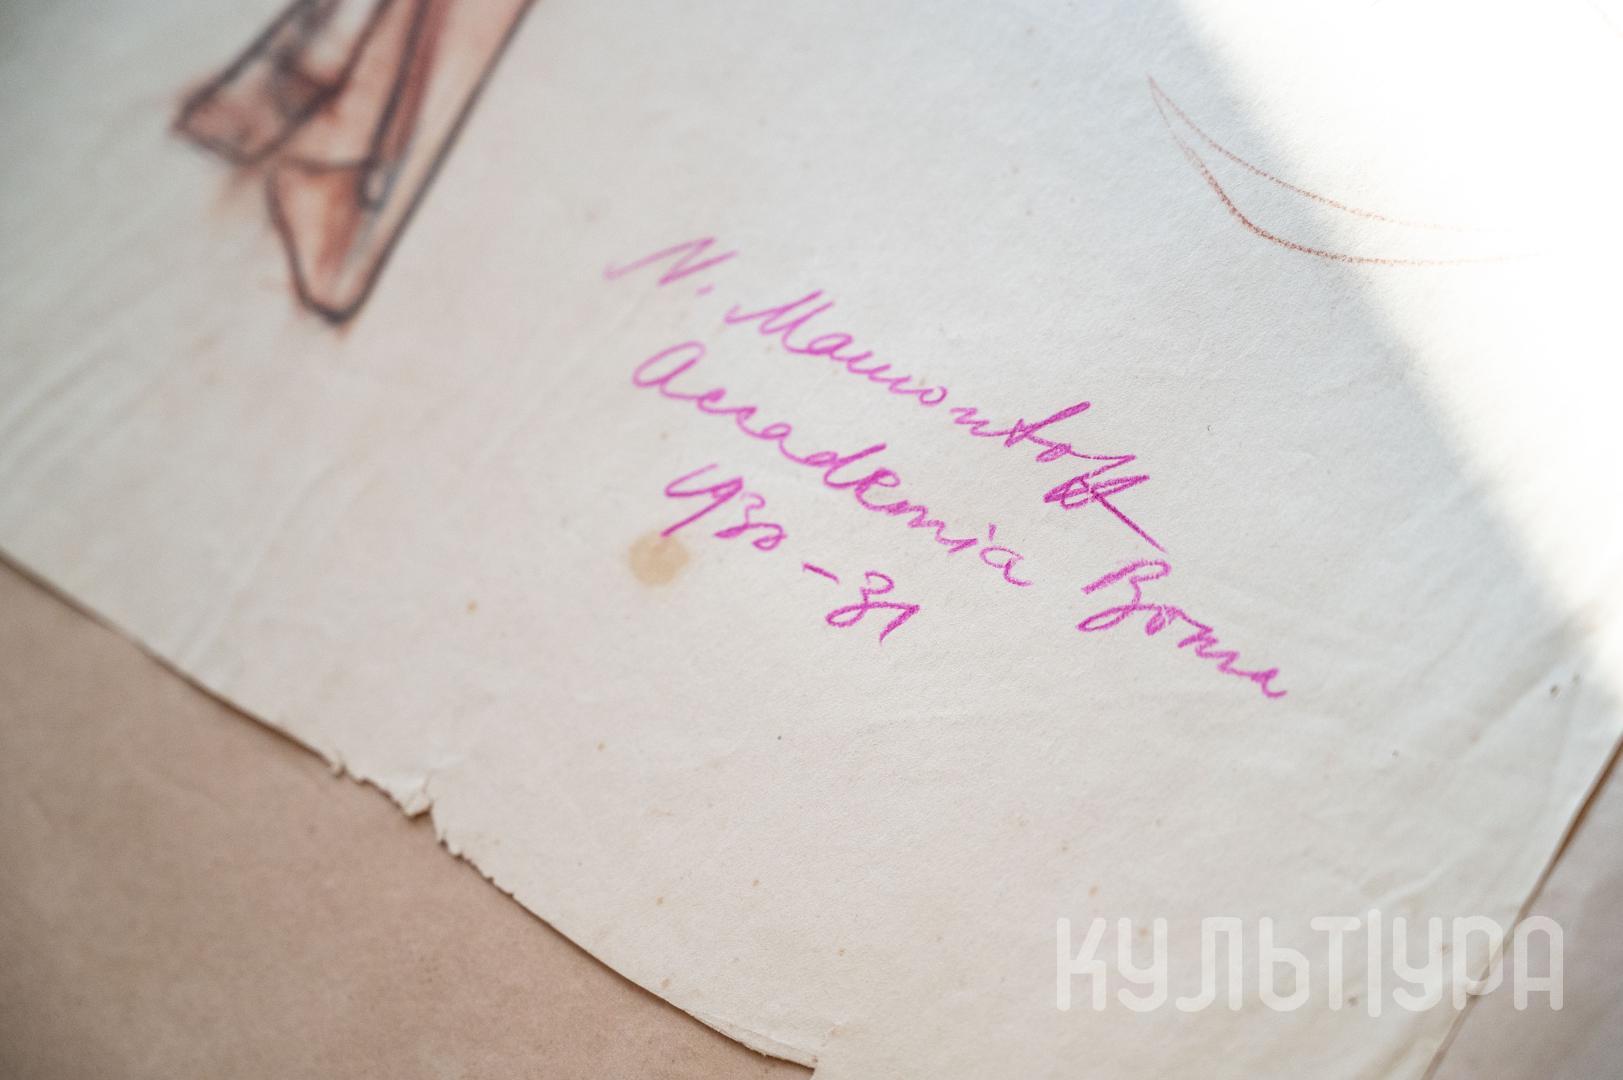 N. Mamontoff
Accademia Roma
1930-31
КУЛЬТУРА